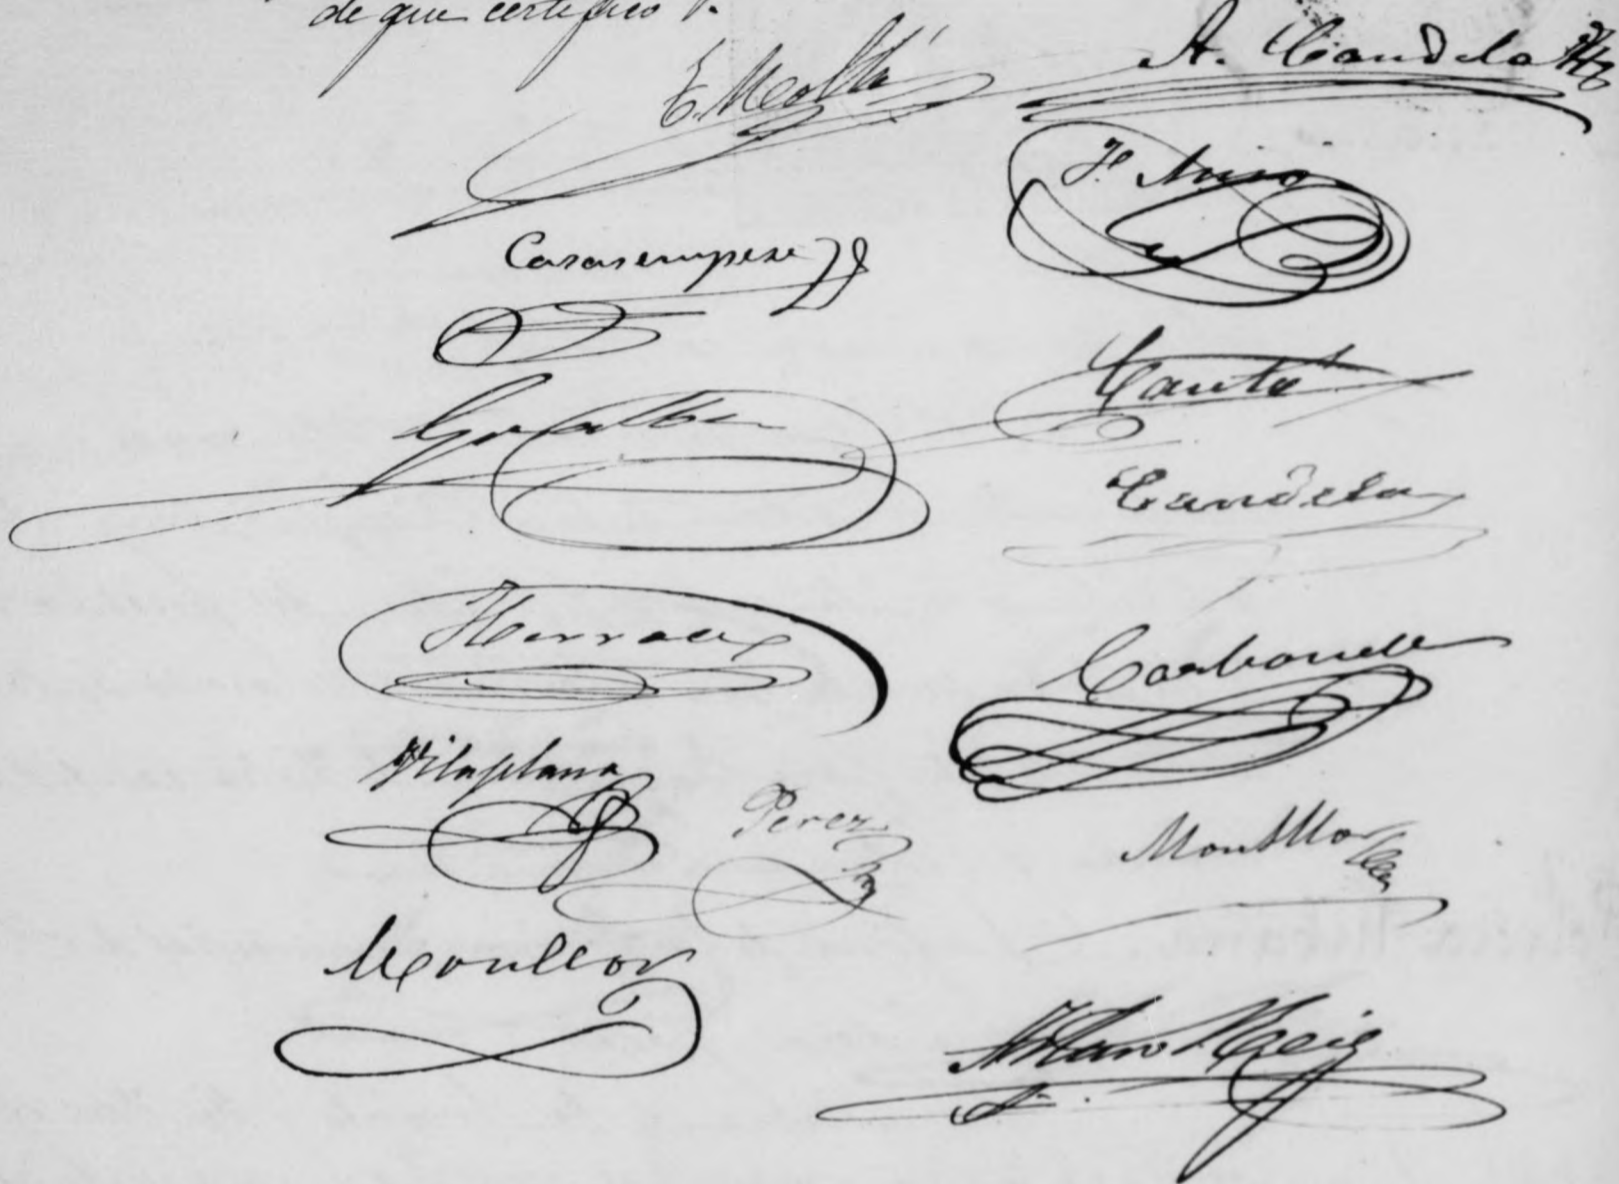 de que certifico
E. Moltá
A. Candela
Casasempere
Cantó
Gosalbez
Candela
Herraez
Carbonell
Vilaplana
Perez
Montllor
Moullor